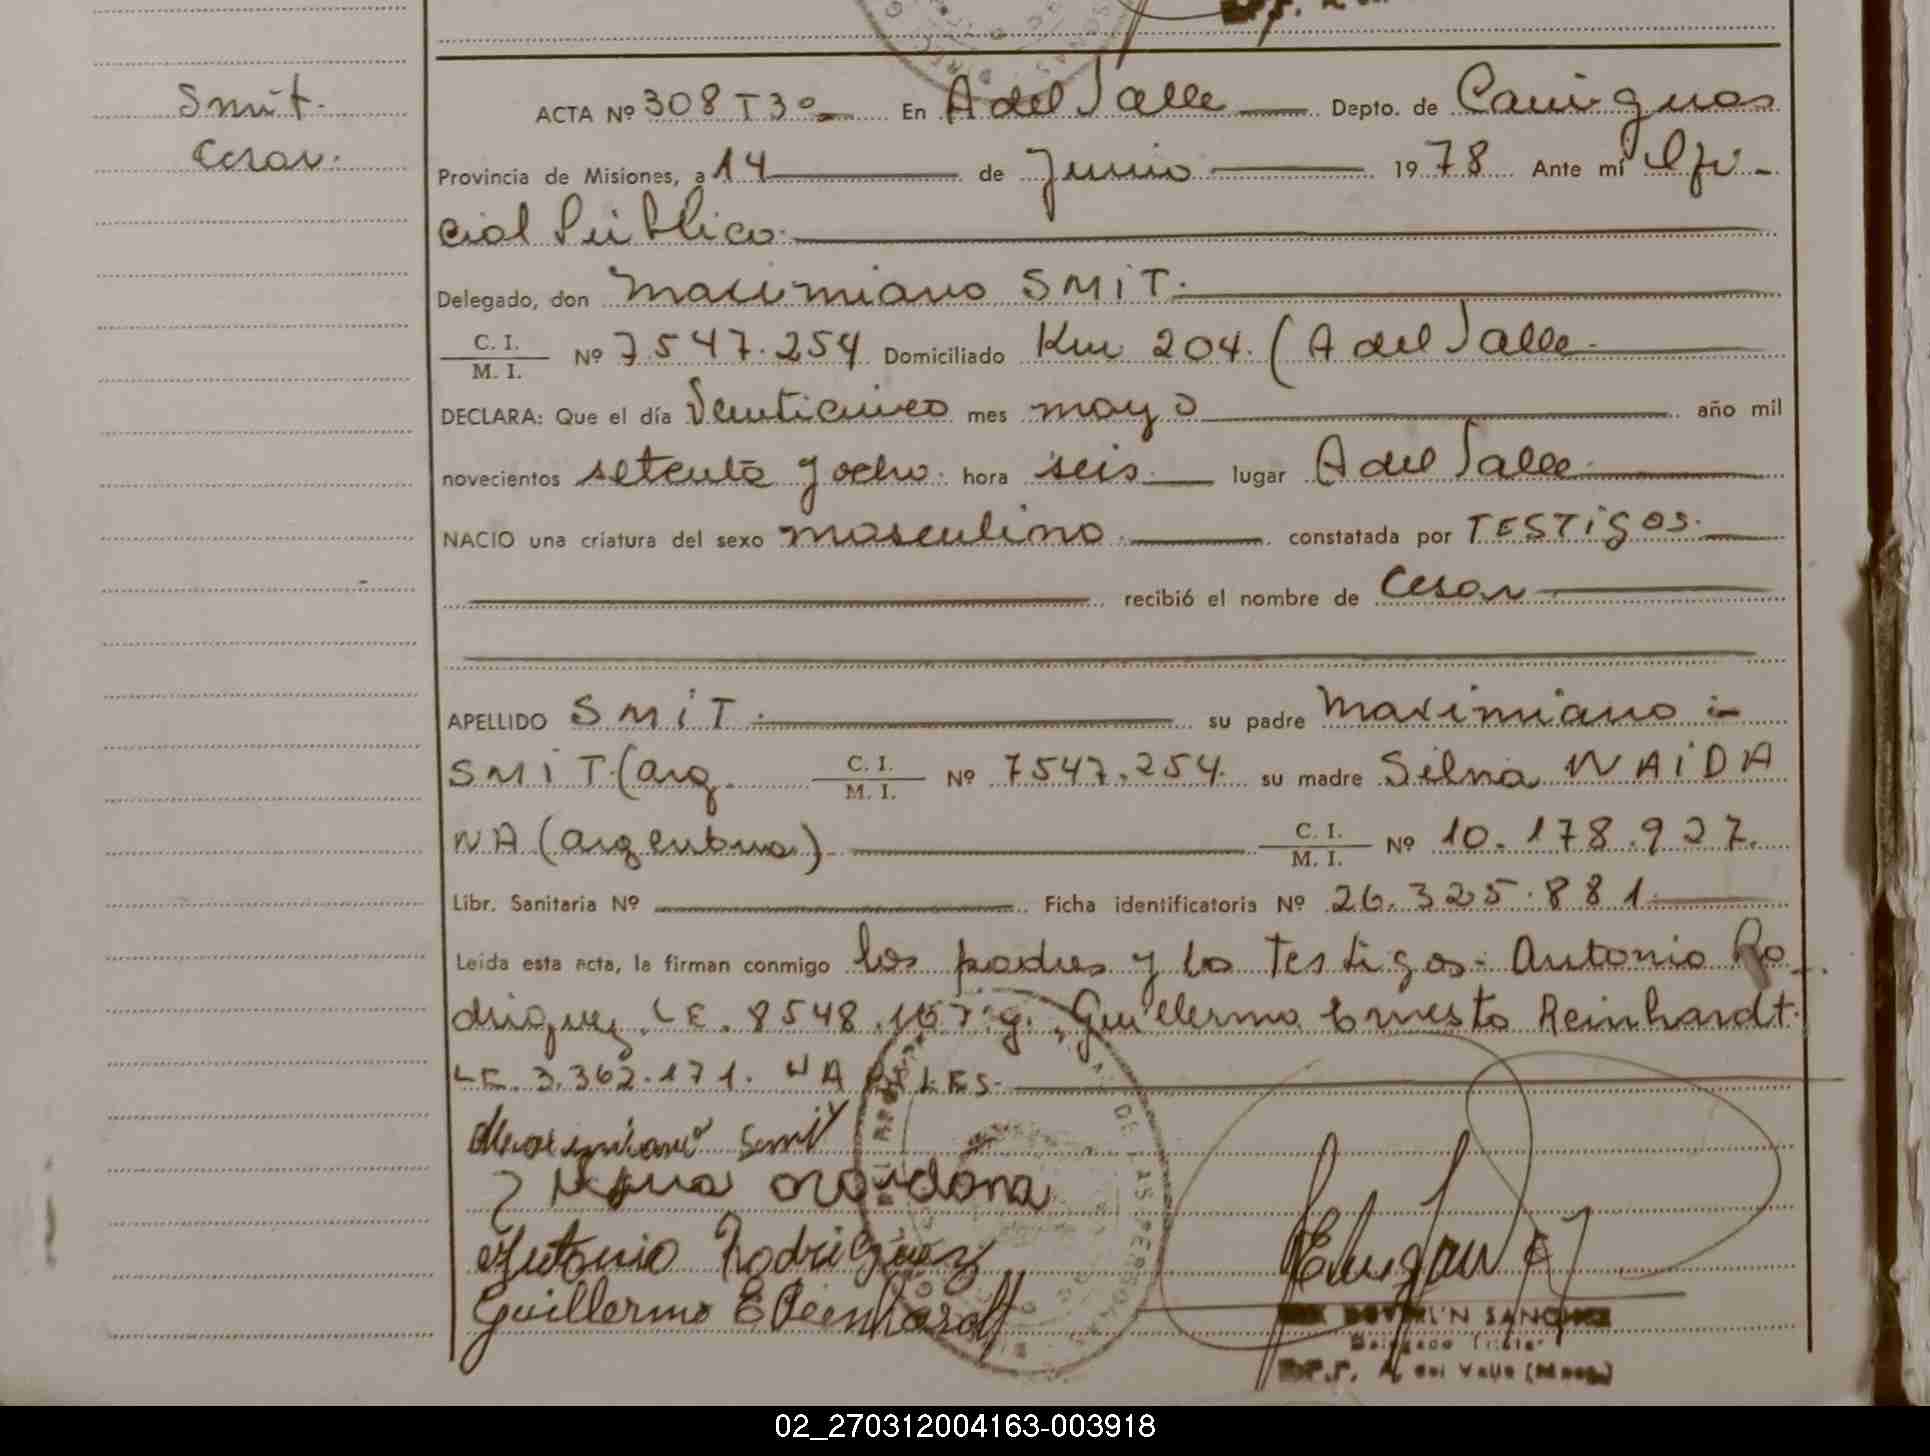 Smit.
Cesar.
ACTA Nº 308 T3º En A del Valle Depto. de Cainguas
Provincia de Misiones, a 14 de Junio 1978 Ante mí Ofi-
cial Público.
Delegado, don Maximiano SMiT.
C. I. / M. I. Nº 7547.254 Domiciliado Km 204. (A del Valle.
DECLARA: Que el día Venticinco mes mayo año mil
novecientos setenta y ocho. hora seis. lugar A del Valle.
NACIO una criatura del sexo masculino constatada por TESTigos.
recibió el nombre de Cesar
APELLIDO SMiT. su padre Maximiano
SMiT.(arg. C. I. / M. I. Nº 7547.254. su madre Silna NAiDA
NA (argentina) C. I. / M. I. Nº 10.178.927.
Libr. Sanitaria Nº Ficha identificatoria Nº 26.325.881.
Leída esta acta, la firman conmigo los padres y los Testigos- Antonio Ro-
driguez. LE. 8548.167. y. Guillermo Ernesto Reinhardt.
LE. 3.362.171.
Maximiano Smit
Antonio Rodriguez
Guillermo E Reinhardt
SANCHEZ
Delegado Titular
A. del Valle (Mnes.)
DE LAS PERSONAS
02_270312004163-003918